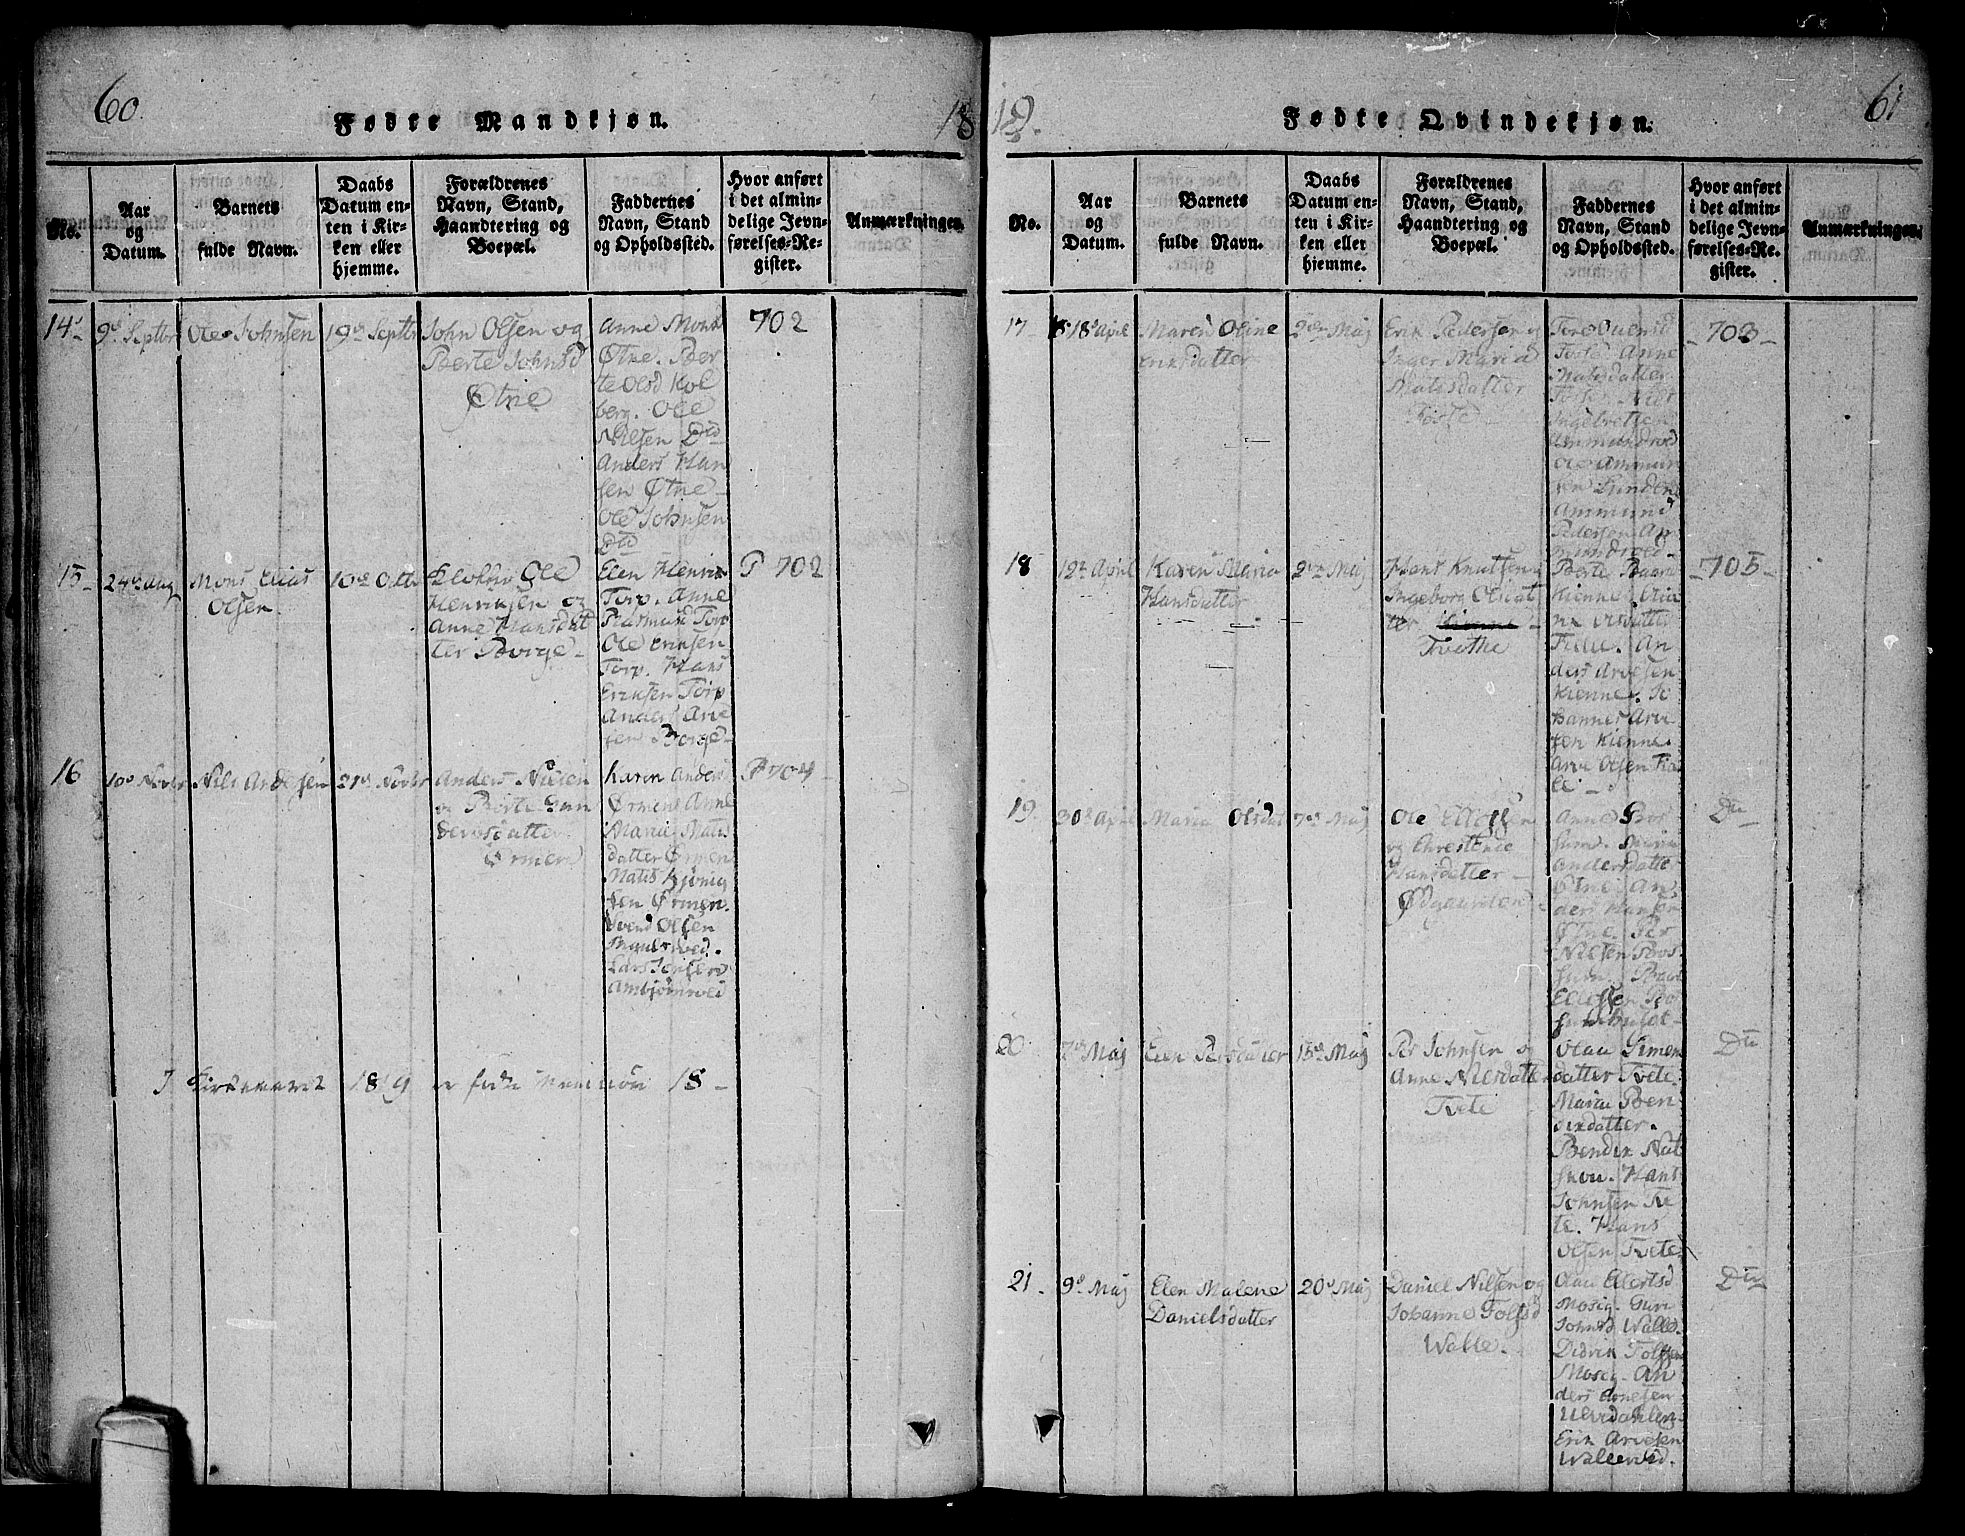 60.
Fødte Mandkjøn.
18
No.
Aar
og
Datum.
Barnets
fulde Navn.
Daabs
Datum en-
ten i Kir-
ken eller
hjemme.
Forældrenes
Navn, Stand,
Haandtering og
Boepæl.
Faddernes
Navn, Stand
og Opholdssted.
Hvor anført
i det almin-
delige Jevn-
førelses-Re-
gister.
Anmærkninger.
14
9de Septbr
Ole Johnsen
19de Septbr
John Olsen og
Berte Johnsd
Øtne
Anne Mons
Øtne. Ber
te Olsd Kol
berg. Ole
Nilsen Dtd
Anders Han
sen Øtne
Ole Johnsen
Dtd
702
15
24de Aug
Mons Elias
Olsen.
10de Octbr
Ole
Henriksen og
Anne Hansdat
ter Borge
Elen Henrik
Torp. Anne
Rasmusd Torp
Ole Eriksen
Torp. Hans
Eriksen Torp
Anders Arve
sen Borge
P 702
16
10de Novbr
Nils Andersen
21de Novbr
Anders Nilsen
og Berte Gun
dersdatter
Ørmen
Karen Anders
Ørmen Anne
Marie Matis
datter Ørmen
Matis
sen Ørmen.
Svend Olsen
Lars Jensen
Ambjørnrød
P 704
I Kirkeaaret 1819 er fødte Mandkiøn 18
19.
Fødte Qvindekjøn.
61
No.
Aar
og
Datum.
Barnets
fulde Navn.
Daabs
Datum en-
ten i Kir-
ken eller
hjemme.
Forældrenes
Navn, Stand,
Haandtering og
Boepæl.
Faddernes
Navn, Stand
og Opholdssted.
Hvor anført
i det almin-
delige Jevn-
førelses-Re-
gister.
Anmærkninger.
17
18de April
Maren Oline
Eriksdatter
2den Maj
Erik Pedersen og
Inger Maria
Matisdatter
Fosse
Tore
Fosse Anne
Matisdatter
Fosse Niels
Ingebretsen
Ammundrød
Ole Ammun
sen Lunden
Ammund
Pedersen Am
mundrød
703
18
12te April
Karen Maria
Hansdatter
2den Maj
Hans Knutsen og
Ingeborg Olsdat
ter
Tvethe
Berte
Kienne. Olia
na Olsdatter
An
ders Arvesen
Kienne. Jo
hannes Arve
sen Kienne.
Arve Olsen
705
19
30de April
Maria Olsdat
7de Maj
Ole
og Christence
Hansdatter
Ødgaarden
Anne Bos
sum. Maria
Andersdatter
Øtne. An
ders Hansen
Øtne. Per
Nilsen Bos
sum.
Du
20
7de Maj
Elen Persdatter
15de Maj
Per Johnsen og
Anne Nilsdatter
Tvete
Olau Simen
datter Tvete
Maria Ben
dixdatter.
Bendix Nat
skou. Hans
Johnsen Tve
te. Hans
Olsen Tvete
Du
21
9de Maj
Elen Malene
Danielsdatter
20de Maj
Daniel Nilsen og
Johanne Folfsd
Walle.
Olau Ellertsd
Mosig. Guri
Johnsd Walle.
Didrik Folfsen
Mosig. An
ders Arnesen
Ulvedahlen
Erik Arvesen
Wallerød.
Du